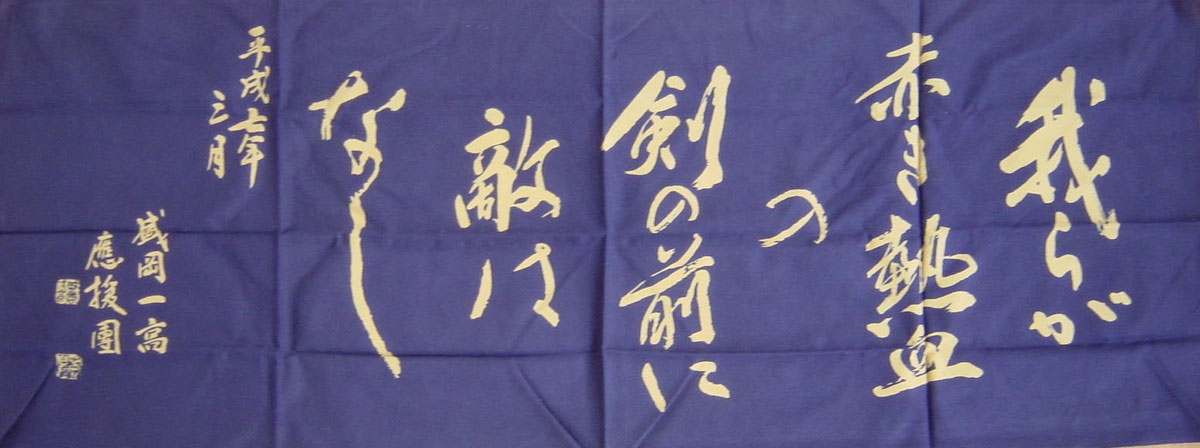 我らが
赤き熱血
の
剣の前に
敵は
なし
平成七年
三月
盛岡一高
應援團